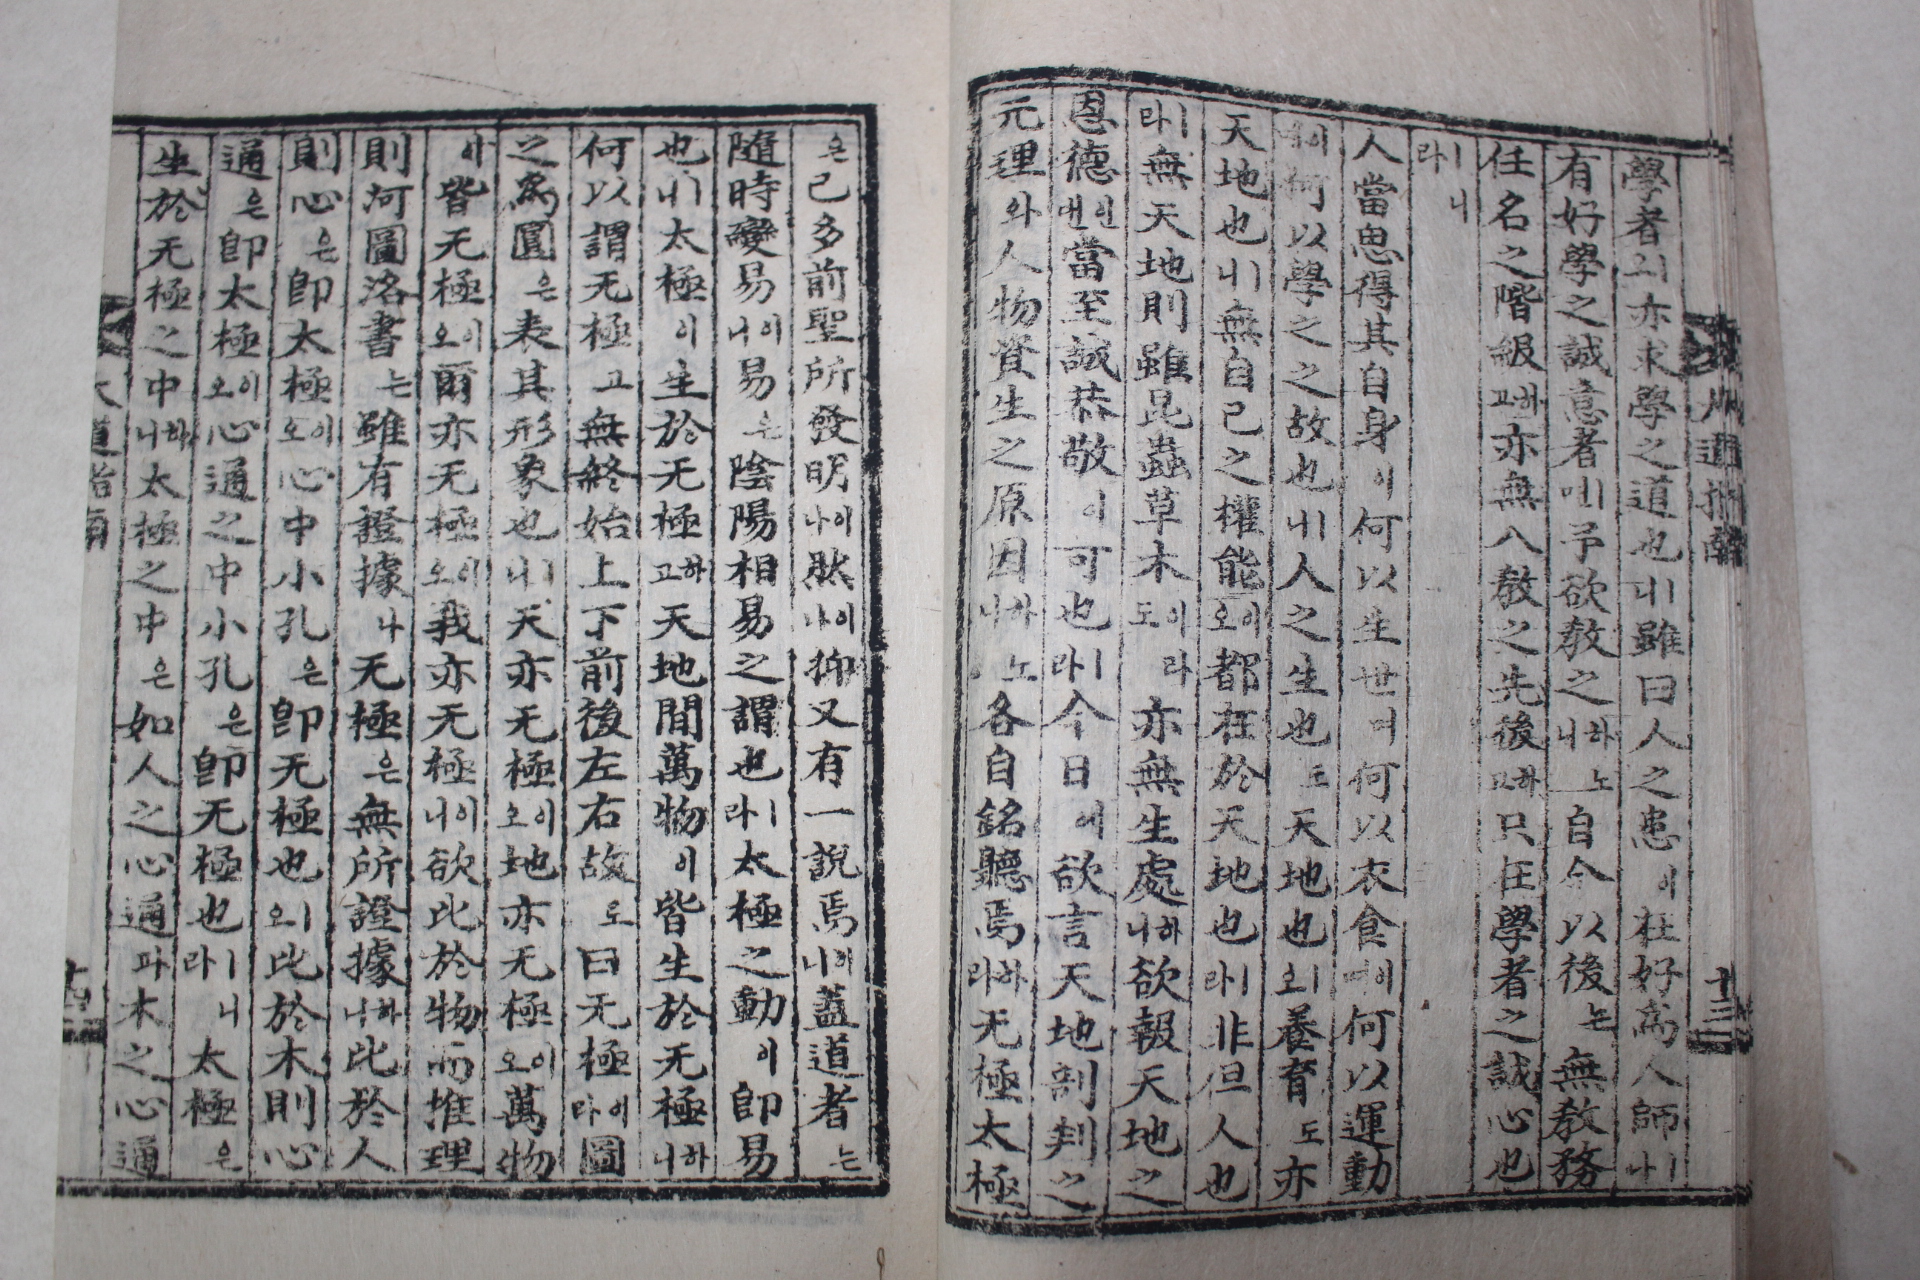 學者ㅣ亦求學之道也ㅣ니雖曰人之患이在好爲人師ㅣ나
有好學之誠意者ㅣ면予欲敎之하노니自今以後는無敎務
任名之階級하고亦無入敎之先後하고只在學者之誠心也
ㅣ라니
人當思得其自身이何以生世며何以衣食이며何以運動
이며何以學之之故也ㅣ니人之生也도天地也ㅣ오養育도亦
天地也ㅣ니無自己之權能이오都在於天地也ㅣ라非但人也
ㅣ라無天地則雖昆蟲草木이라도亦無生處하니欲報天地之
恩德인댄當至誠恭敬이可也ㅣ라今日에欲言天地剖判之
元理와人物資生之原因하노니各自銘聽焉하라无極太極
은已多前聖所發明이나然이나抑又有一說焉이니蓋道者는
隨時變易이니易은陰陽相易之謂也ㅣ라太極之動이卽易
也ㅣ니太極이生於无極하고天地間萬物이皆生於无極하니
何以謂无極고無終始上下前後左右故로曰无極이라圖
之爲圓은表其形象也ㅣ니天亦无極이오地亦无極이오萬物
이皆无極이오爾亦无極이오我亦无極이니欲比於物而推理
則河圖洛書는雖有證據나无極은無所證據하니比於人
則心은卽太極이오心中小孔은卽无極也ㅣ오比於木則心
通은卽太極이오心通之中小孔은卽无極也ㅣ라니太極은
生於无極之中하니太極之中은如人之心通과木之心通
大道治
十三
十四